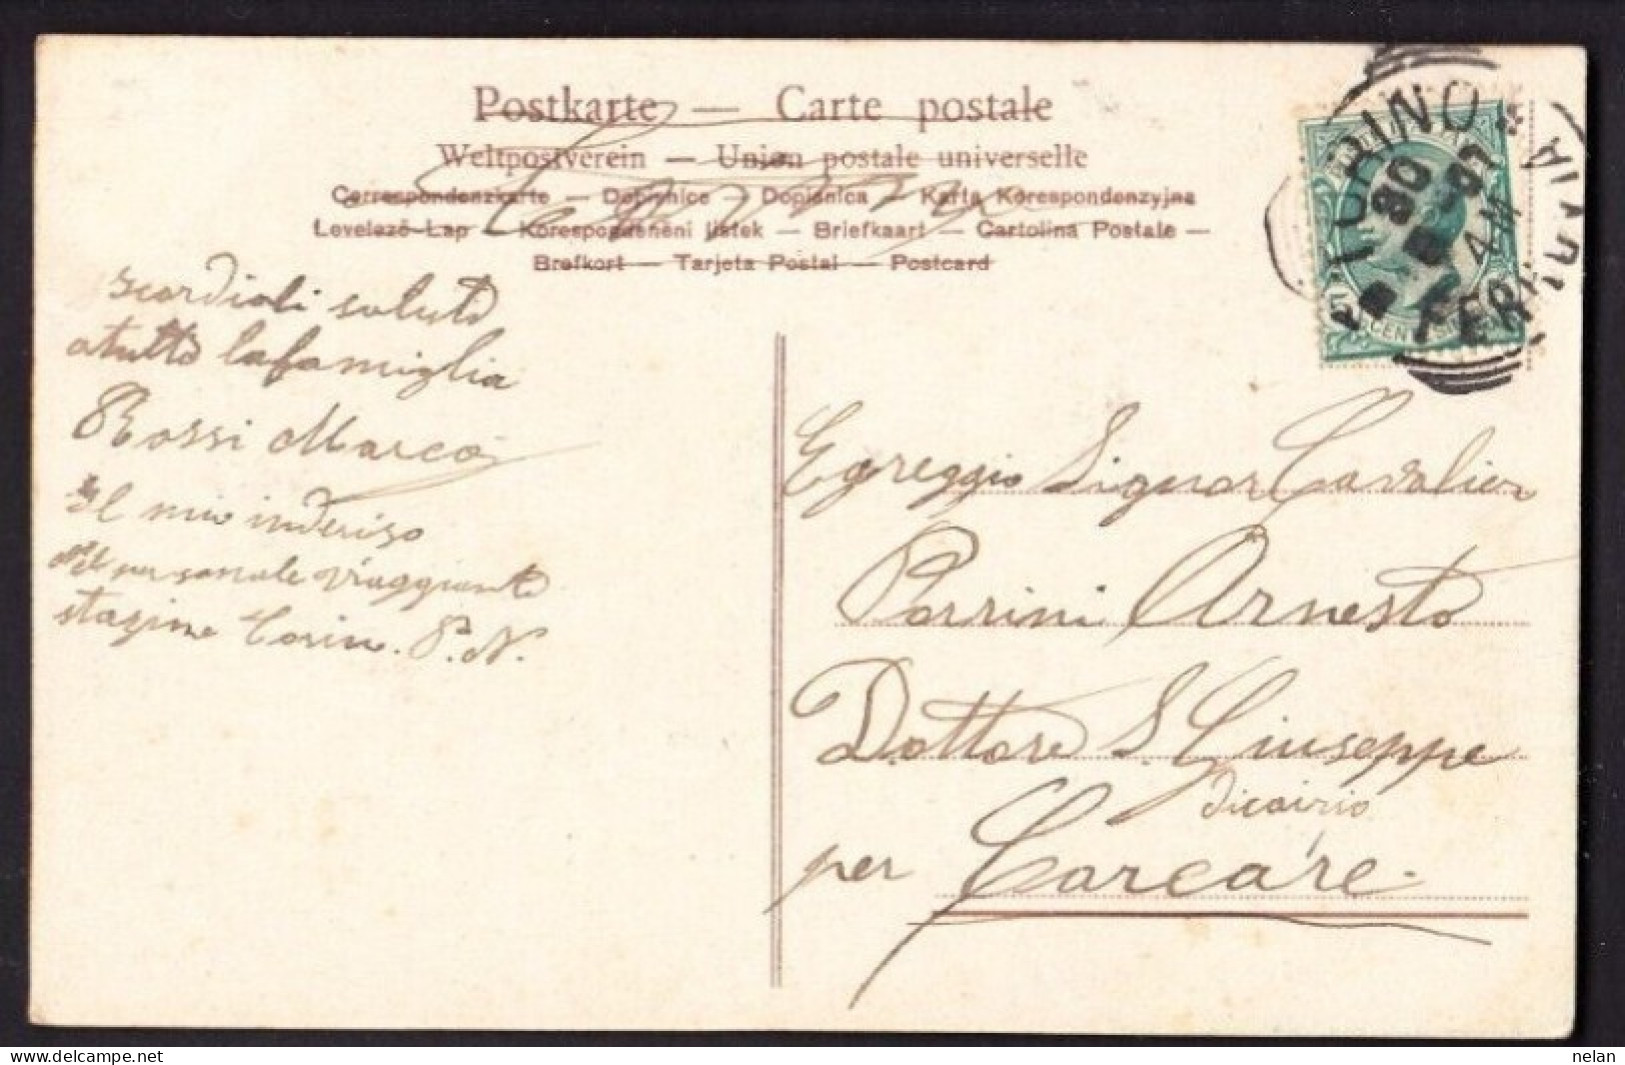 Postkarte — Carte postale
Weltpostverein — Union postale universelle
Correspondenzkarte — Dopisnice — Dopisnica — Karta Korespondenzyjna
Levelező-Lap — Korespondenčni listek — Briefkaart — Cartolina Postale —
Brefkort — Tarjeta Postal — Postcard
TORINO
FERROVIA
CENT
scordiali saluto
atutto lafamiglia
Rossi Marco
Il mio inderiso
del personale viaggianto
stazione Torino. P. N.
Egreggio Signor Cavalier
Porrini Arnesto
Dottore S. Giuseppe
dicairio
per Carcare.
www.delcampe.net
nelan